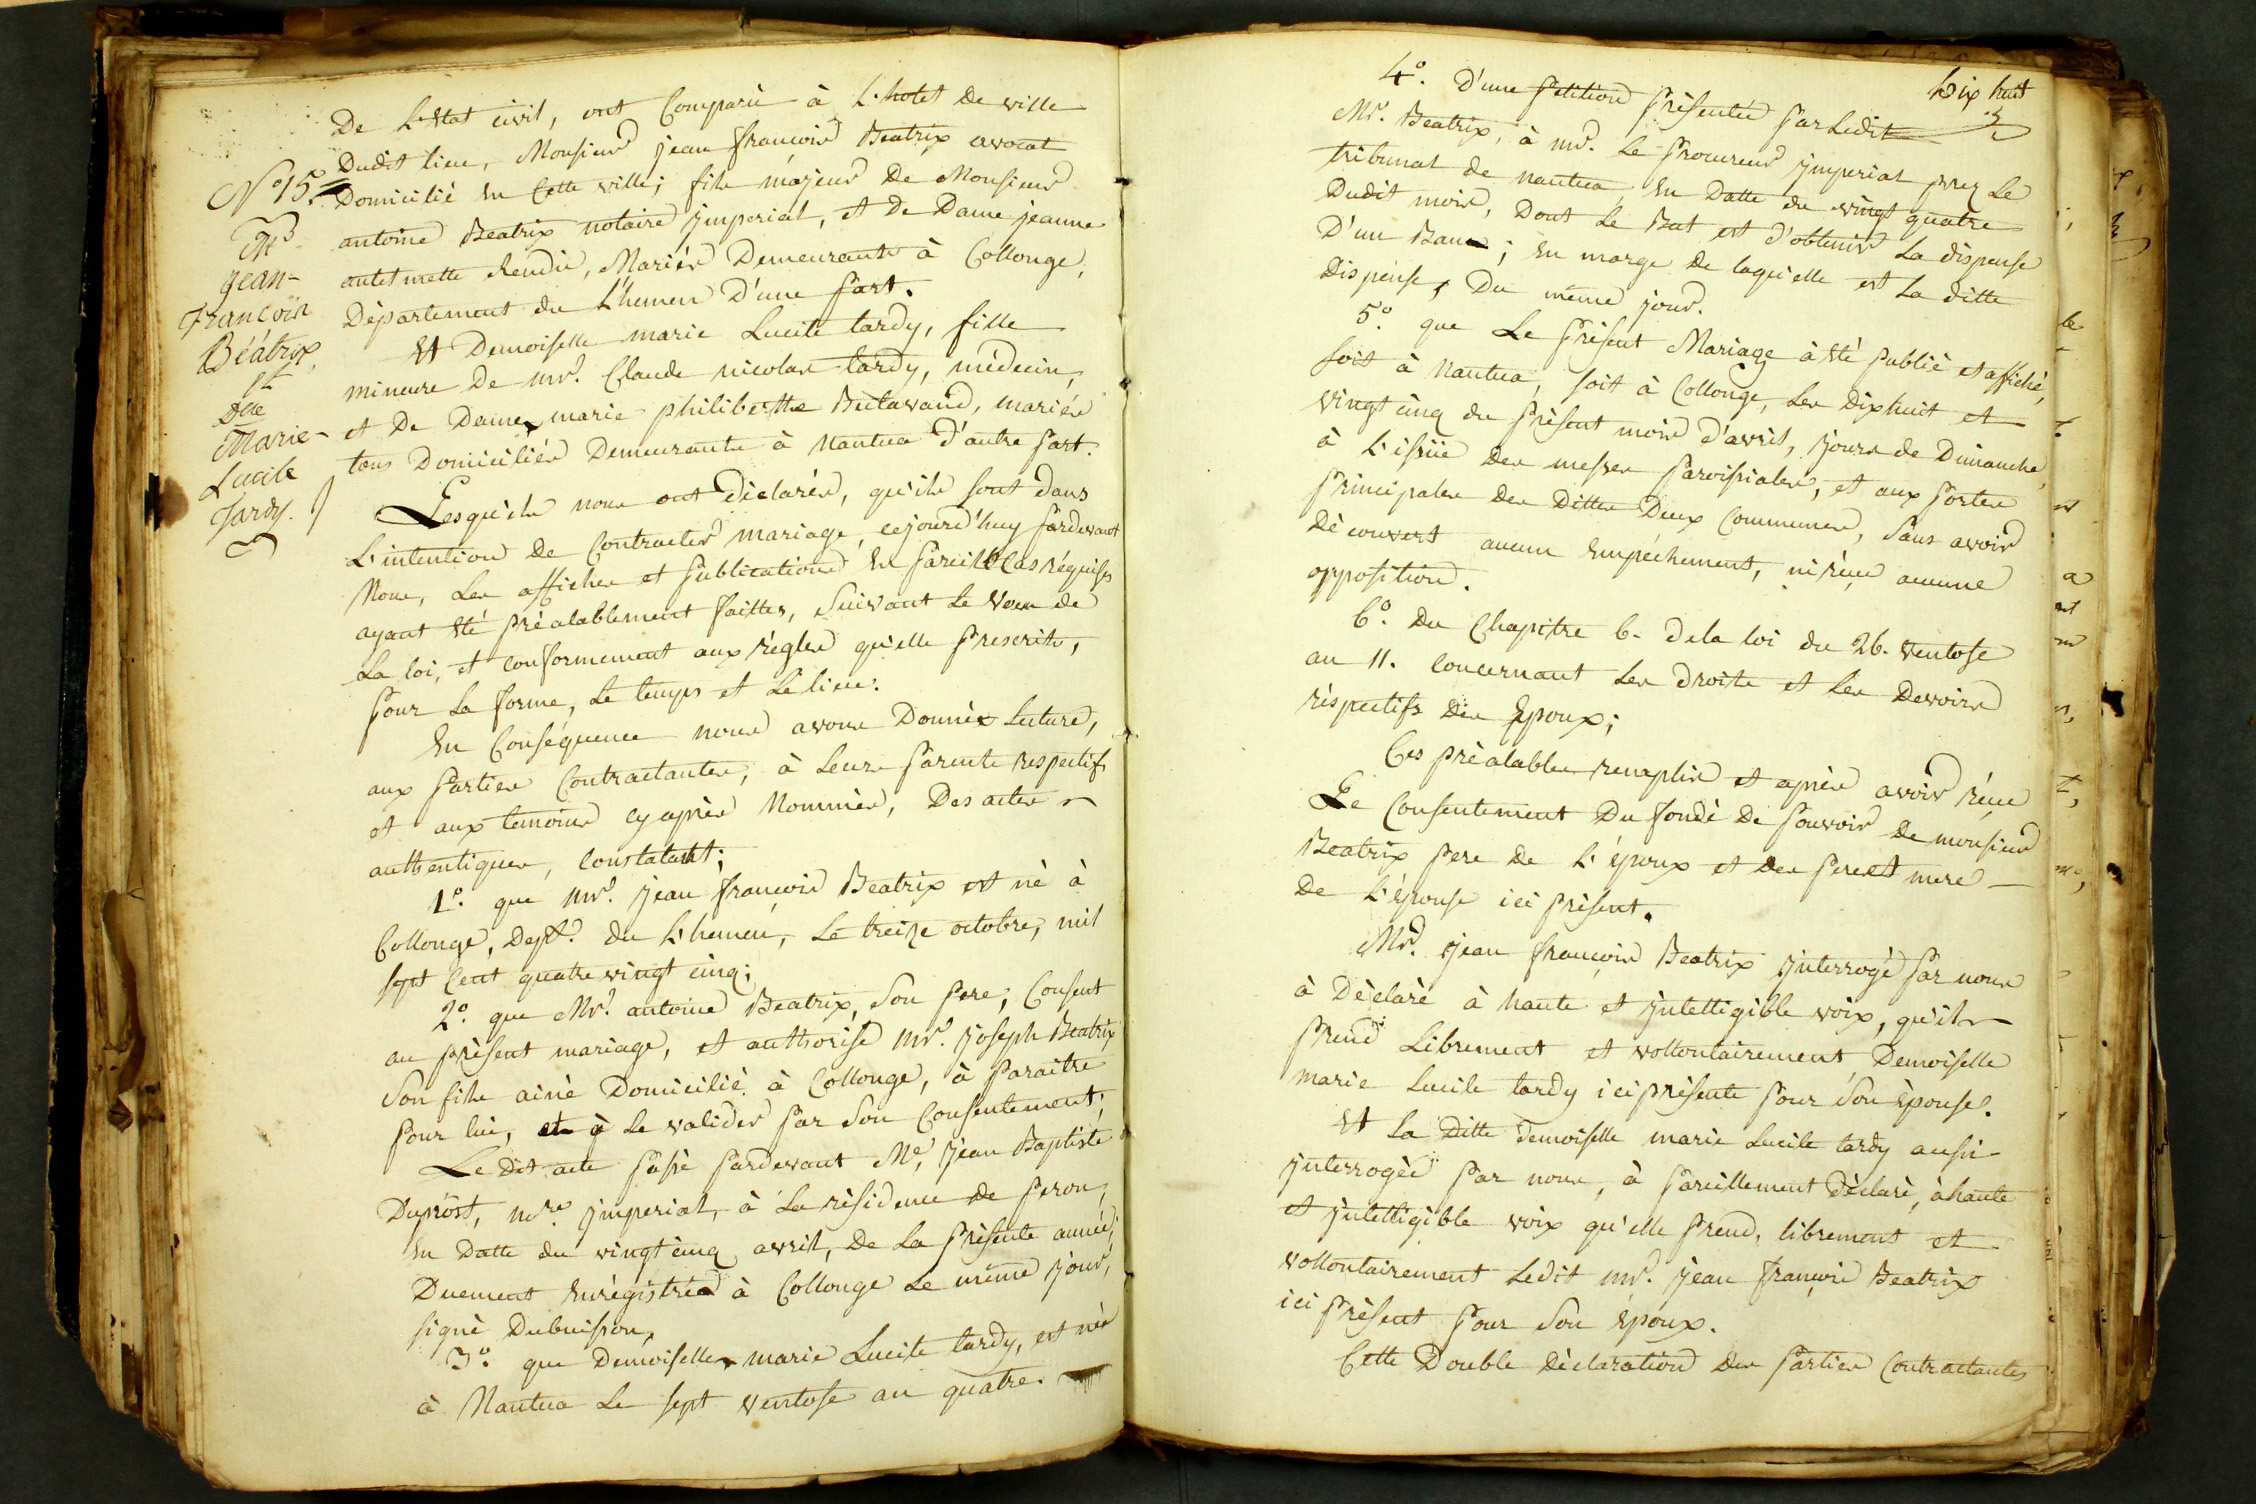 De L'Etat civil, ont Comparû à L'hotel de ville
Dudit lieu, Monsieur jean françois Beatrix avocat
Domicilié En Cette ville; fils majeur De Monsieur
antoine Beatrix notaire jmperial, et De Dame jeanne
antelmette Rendu, Mariés Demeurants à Collonge,
Dèpartement du L'hemen D'une part.
Et Demoiselle marie Lucile tardy, fille
mineure De mr. Claude nicolas tardy, médecin,
et De Dame marie philiberthe Butavand, mariés
tous Domiciliés Demeurants à Nantua d'autre part.
Lesquels nous ont dèclarés, qu'ils sont dans
L'intention De Contracter mariage, cejourd'huy pardevant
Nous, Les affiches et publications En pareil Cas réquises
ayant Eté prèalablement faittes, Suivant Le Voeu de
La loi, et conformement aux règles qu'elle prescrits,
pour La forme, Le temps et Le lieu.
En Conséquence nous avons Donnès Lecture,
aux parties Contractantes, à Leurs parents respectifs
et aux temoins cyaprès Nommès, Des actes
authentiques, Constatant;
1º. que mr. jean françois Beatrix est nè à
Collonge, Dept. du L'hemen, Le treize octobre, mil
sept Cent quatre vingt cinq;
2º. que Mr. antoine Beatrix, Son pere, Consent
au prèsent mariage, et authorise mr. joseph Beatrix
Son fils ainè Domicilié à Collonge, à paraitre
pour lui, et à Le valider par Son Consentement;
Le Dit acte passè pardevant Me, jean Baptiste
Duprost, nre. jmperial, à La rèsidence de peron,
En Datte du vingt cinq avril, De La prèsente année,
Duement Enrégistrée à Collonge Le même jour,
signè Dubuisson,
3º. que Demoiselle marie Lucile tardy, est née
à Nantua Le sept Ventose an quatre.
Nº 15.
Mr
jean-
François
Béátrix,
et
Dlle
Marie-
Lucile
Tardy.
Dix huit
4º. D'une petition présentée par Ledit
Mr. Beatrix, à mr. Le procureur jmperial prez Le
tribunal de nantua, En Datte du vingt quatre
Dudit mois, Dont Le But est d'obtenir La dispense
D'un Banc; En marge De laqu'elle est La ditte
Dispense, Du même jour.
5º. que Le prèsent Mariage à Eté publiè et affichè,
soit à Nantua, soit à Collonge, Les Dixhuit et
vingt cinq du présent mois d'avril, jours de Dimanche,
à L'issüe Des messes paroissiales, et aux portes
principales Des Dittes Deux Communes, Sans avoir
Dècouvert aucun Empéchement, ni rèçue aucune
opposition.
6º. Du Chapitre 6. dela loi du 26. Ventose
an 11. Concernant Les droits et Les Devoirs
réspectifs Des Epoux;
Ces prèalables remplis et après avoir rèçue
Le Consentement Du fondè De pouvoir De monsieur
Beatrix pere De L'époux et Des pere et mere
De L'épouse ici prèsent.
Mr. jean françois Beatrix jnterrogè par nous
à Dèclarè à haute et jntelligible voix, qu'il
prend Librement et vollontairement Demoiselle
marie Lucile tardy ici prèsente pour Son Epouse.
Et La Ditte demoiselle marie Lucile tardy aussi
jnterrogèe par nous, à pareillement Dèclarè, à haute
et jntelligible voix qu'elle prend, librement et
vollontairement Ledit mr. jean françois Beatrix
ici prèsent pour Son Epoux.
Cette Double Dèclaration Des parties Contractantes